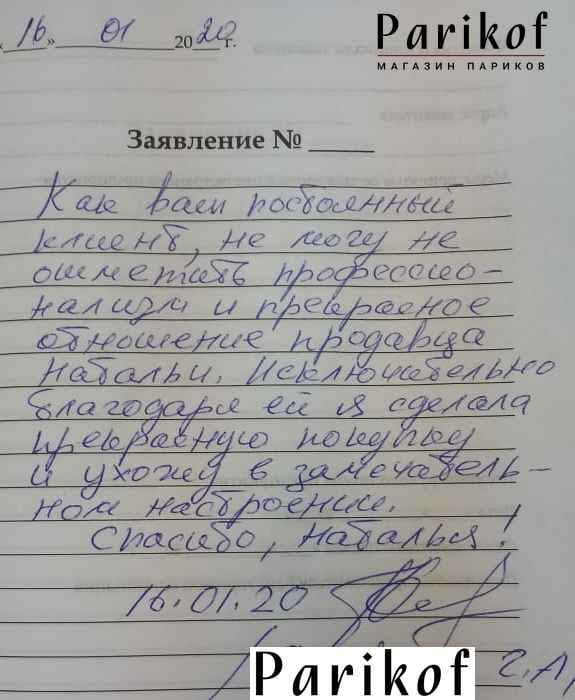 «16» 01 2020 г.
Parikof
МАГАЗИН ПАРИКОВ
Заявление №
Как ваш постоянный
клиент, не могу не
отметить профессио-
нализм и прекрасное
отношение продавца
Натальи. Исключительно
благодаря ей я сделала
прекрасную покупку
и ухожу в замечатель-
ном настроении.
Спасибо, Наталья!
16.01.20
Parikof